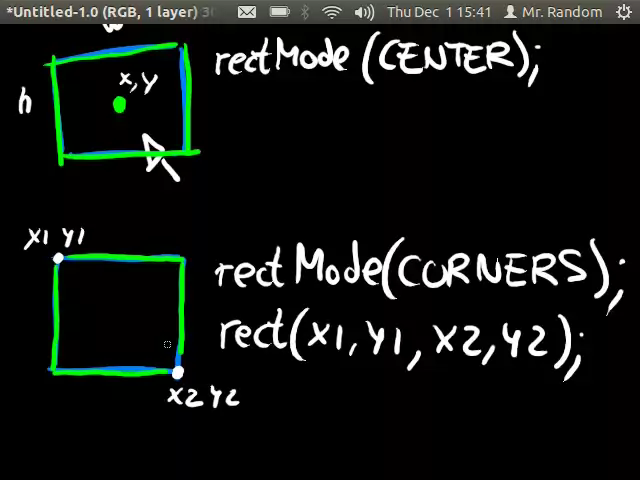 *Untitled-1.0 (RGB, 1 layer)
Thu Dec 1 15:41
Mr. Random
rectMode (CENTER);
x,y
h
x1 y1
rectMode(CORNERS);
rect(x1,y1, x2,y2);
x2 y2